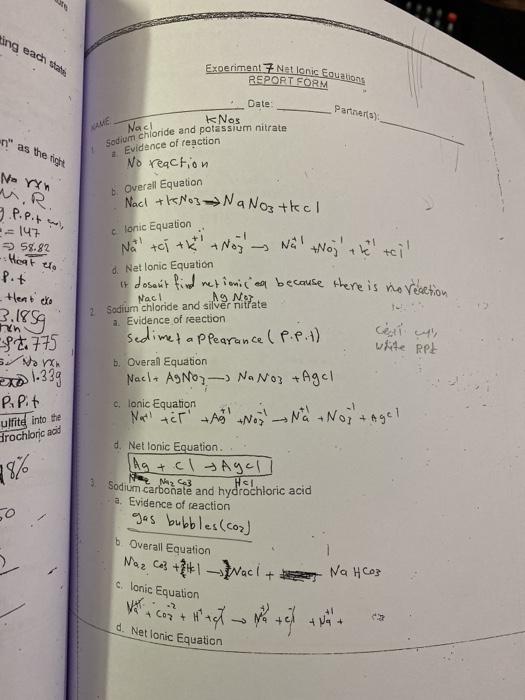 ting each state
n" as the right
No rxn
M.R.
= 147
58.82
Heat exo
P.t
3.185g
ppt.775
No rxn
1.33g
P.P.t
ulfite into the
drochloric acid
18%
50
Experiment 7 Net Ionic Equations
REPORT FORM
NAME: Date: Partner(s):
Nacl KNO3
1. Sodium chloride and potassium nitrate
a. Evidence of reaction
No reaction
b. Overall Equation
Nacl + KNO3 → NaNO3 + kcl
c. Ionic Equation
Na+1 + cl-1 + K+1 + NO3-1 → Na+1 + NO3-1 + k+1 + cl-1
d. Net Ionic Equation
it dosen't find net ionic eq because there is no reaction
Nacl AgNO3
2. Sodium chloride and silver nitrate
a. Evidence of reection
Sedimet appearance (P.P.t)
white PPt
b. Overall Equation
Nacl + AgNO3 → NaNO3 + Agcl
c. Ionic Equation
Na+1 + cl-1 + Ag+1 + NO3-1 → Na+1 + NO3-1 + Agcl
d. Net Ionic Equation.
Ag + Cl → Agcl
Na2 CO3 Hcl
3. Sodium carbonate and hydrochloric acid
a. Evidence of reaction
gas bubbles (CO2)
b. Overall Equation
Na2 CO3 + Hcl → Nacl + NaHCO3
c. Ionic Equation
Na+1 + CO3-2 + H+1 + cl-1 → Na+1 + cl-1 + Na+1 +
d. Net Ionic Equation